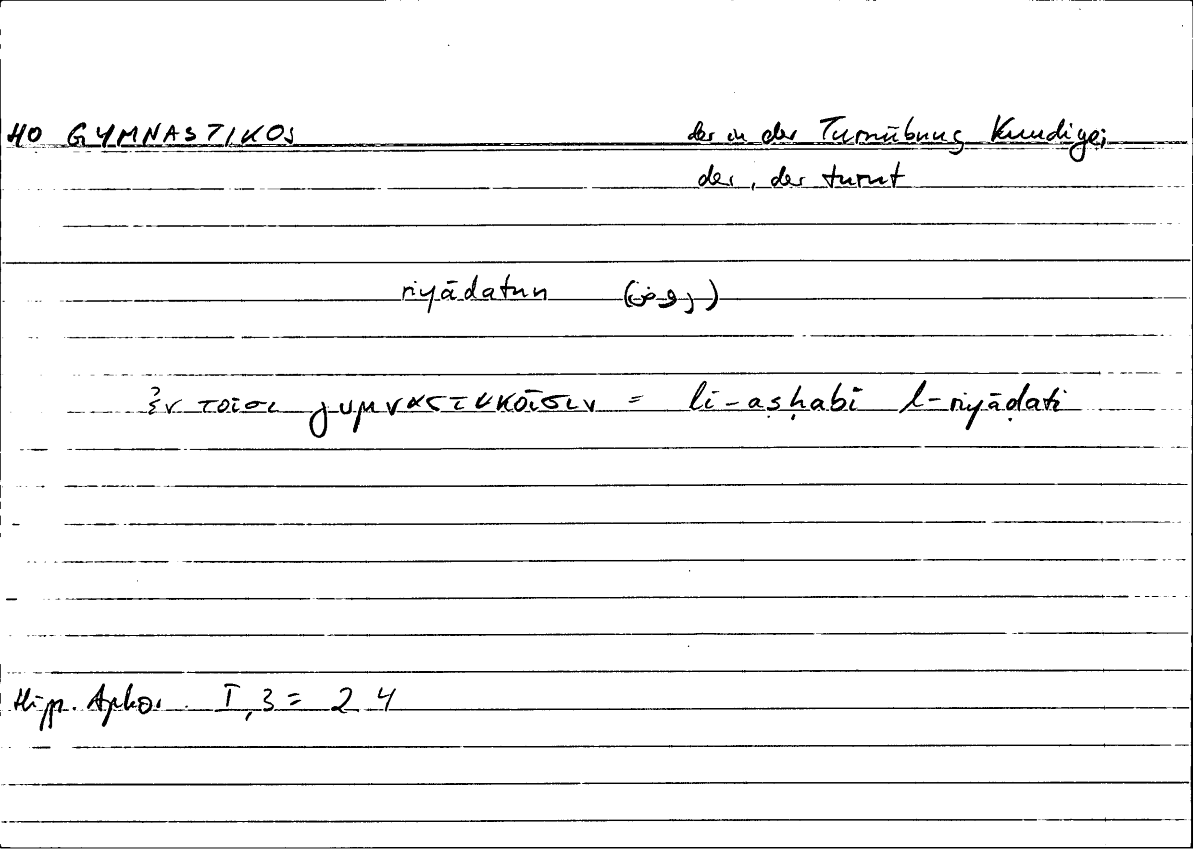 HO GYMNASTIKOS der in der Turnübung Kundige;
der, der turnt
riyādatun (روض)
ἐν τοῖσι γυμναστικοῖσιν = li-aṣḥabi l-riyāḍati
Hipp. Apho. I, 3 = 2 4